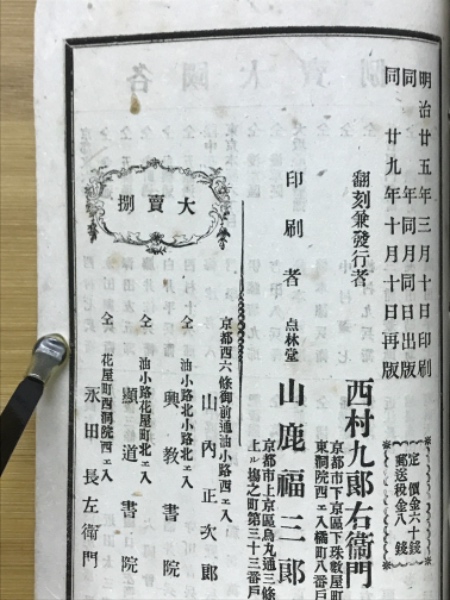 明治廿五年三月十日印刷
同年同月同日出版
同廿九年十月十日再版
定價金六十錢
郵送税金八錢
翻刻兼發行者
西村九郎右衞門
京都市下京區下珠數屋町
東洞院西ヱ入橘町八番戸
印刷者
点林堂
山鹿福三郎
京都市上京區烏丸通三條
上ル塲之町第三十三番戸
大賣捌
京都西六條御前通油小路西ヱ入
山內正次郎
仝
油小路北小路北ヱ入
興教書院
仝
油小路花屋町北ヱ入
顯道書院
仝
花屋町西洞院西ヱ入
永田長左衞門